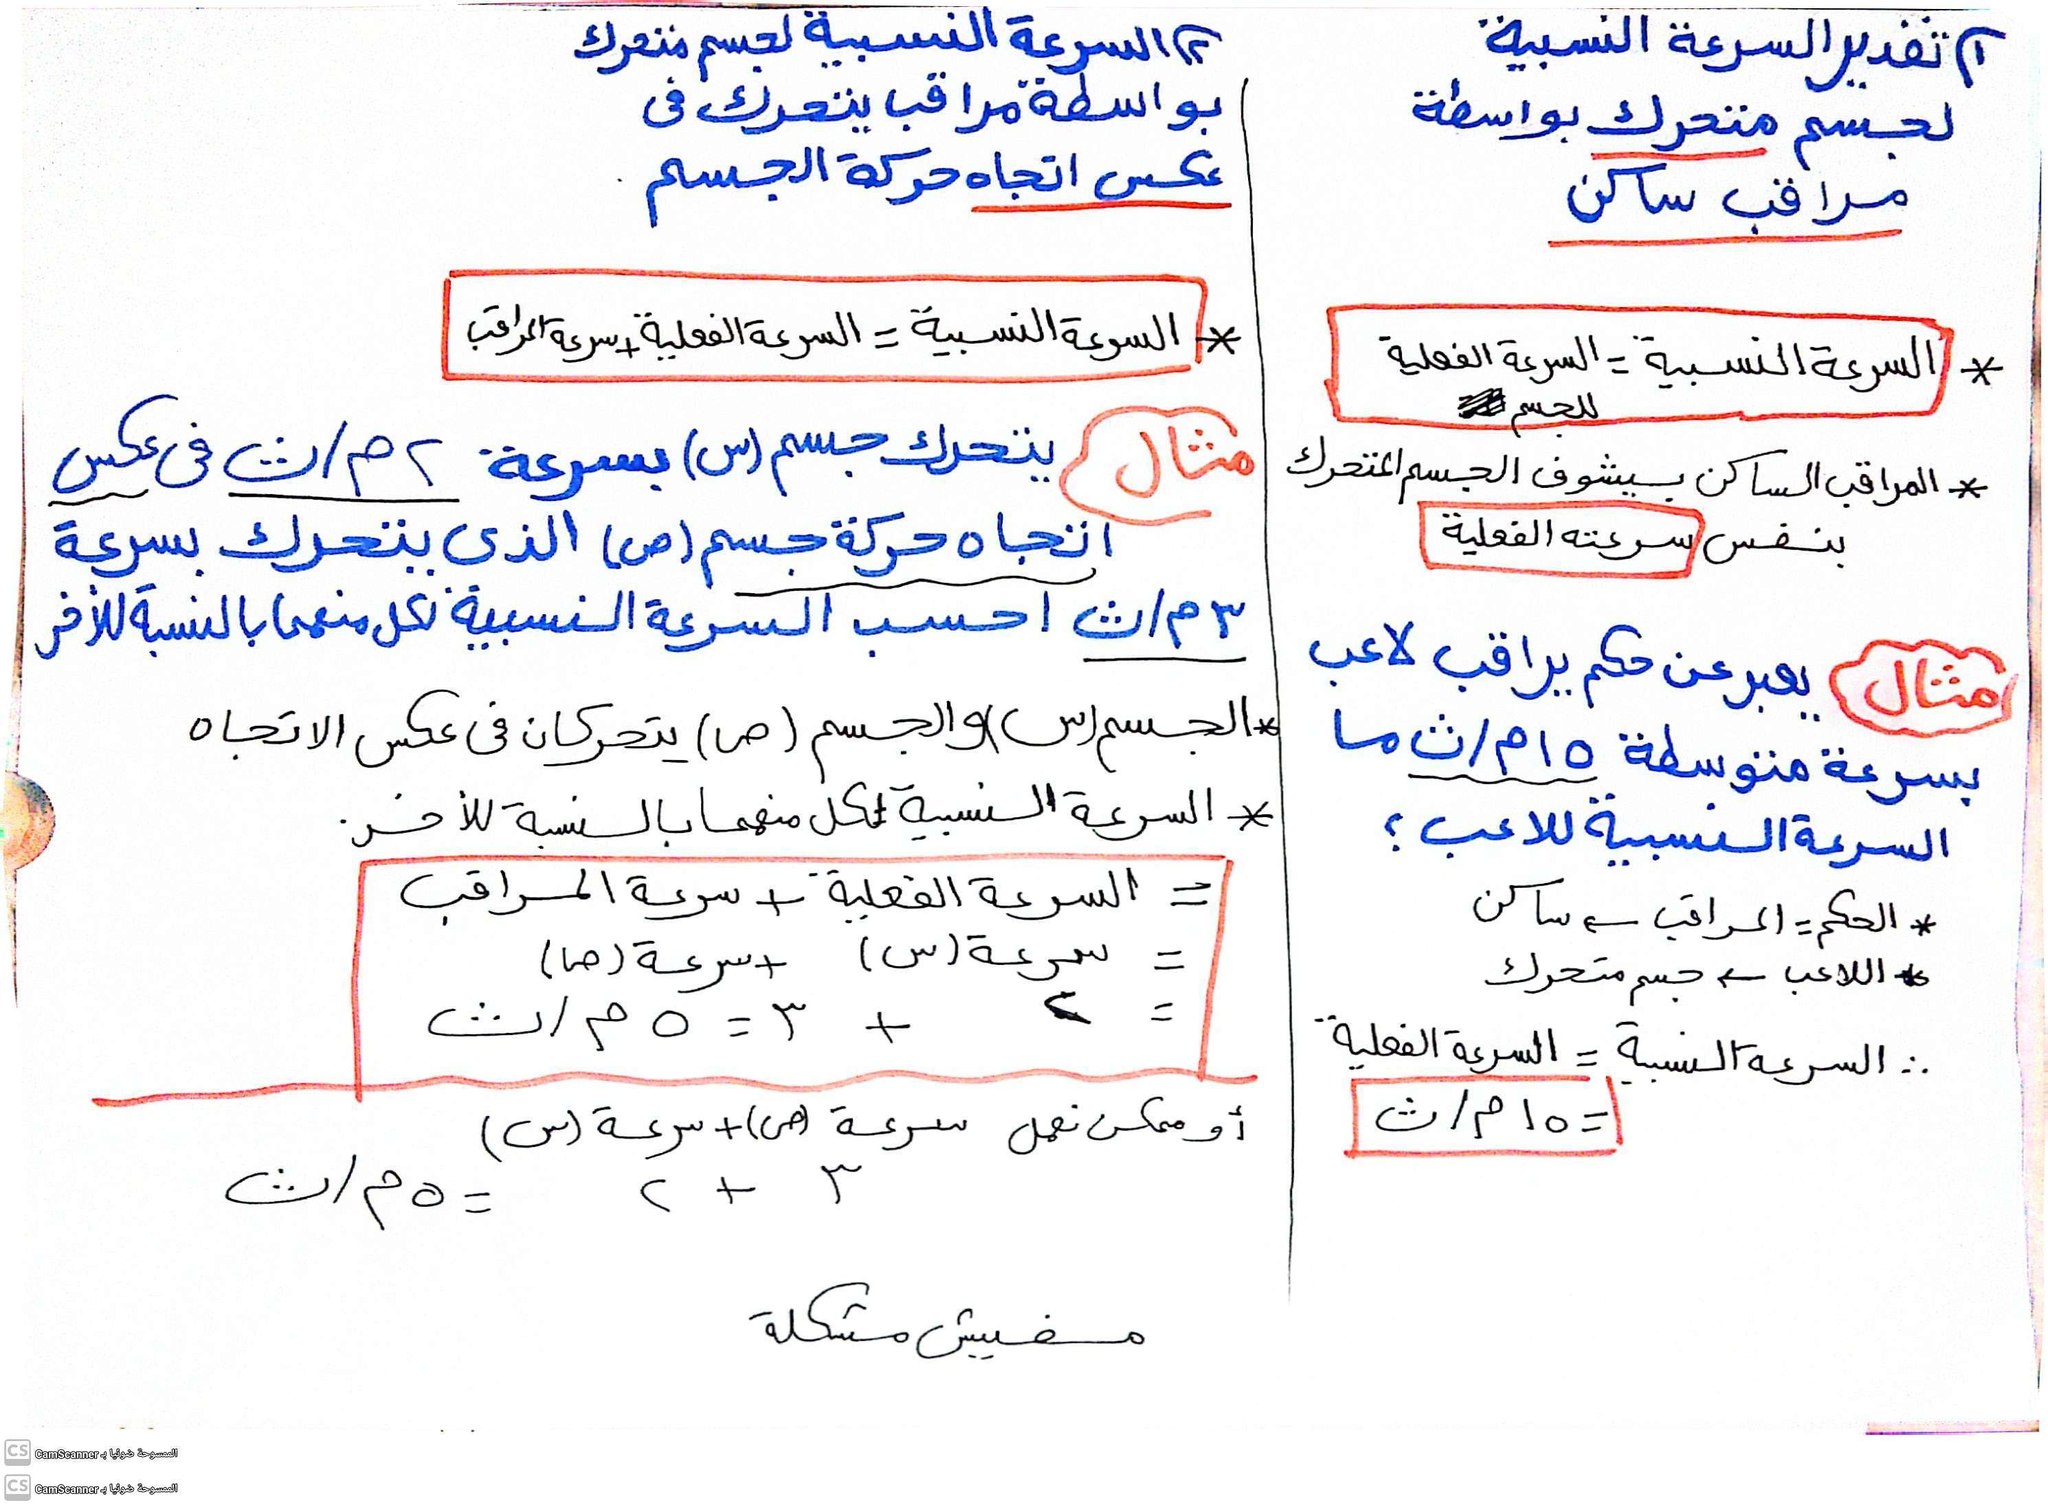 ١) تقدير السرعة النسبية
لجسم متحرك بواسطة
مراقب ساكن
* السرعة النسبية = السرعة الفعلية
للجسم
* المراقب الساكن بيشوف الجسم المتحرك
بنفس سرعته الفعلية
مثال يعبر عن حكم يراقب لاعب
بسرعة متوسطة ١٥م/ث ما
السرعة النسبية للاعب ؟
* الحكم = المراقب ← ساكن
* اللاعب ← جسم متحرك
∴ السرعة النسبية = السرعة الفعلية
= ١٥م/ث
٢) السرعة النسبية لجسم متحرك
بواسطة مراقب يتحرك فى
عكس اتجاه حركة الجسم
* السرعة النسبية = السرعة الفعلية + سرعة المراقب
مثال يتحرك جسم (س) بسرعة ٢م/ث فى عكس
اتجاه حركة جسم (ص) الذى يتحرك بسرعة
٣م/ث احسب السرعة النسبية لكل منهما بالنسبة للأخر
* الجسم (س) والجسم (ص) يتحركان فى عكس الاتجاه
* السرعة النسبية لكل منهما بالنسبة للأخر.
= السرعة الفعلية + سرعة المراقب
= سرعة (س) + سرعة (ص)
= ٢ + ٣ = ٥م/ث
أو ممكن نعمل سرعة (ص) + سرعة (س)
٣ + ٢ = ٥م/ث
مفيش مشكلة
CS الممسوحة ضوئيا بـ CamScanner
CS الممسوحة ضوئيا بـ CamScanner